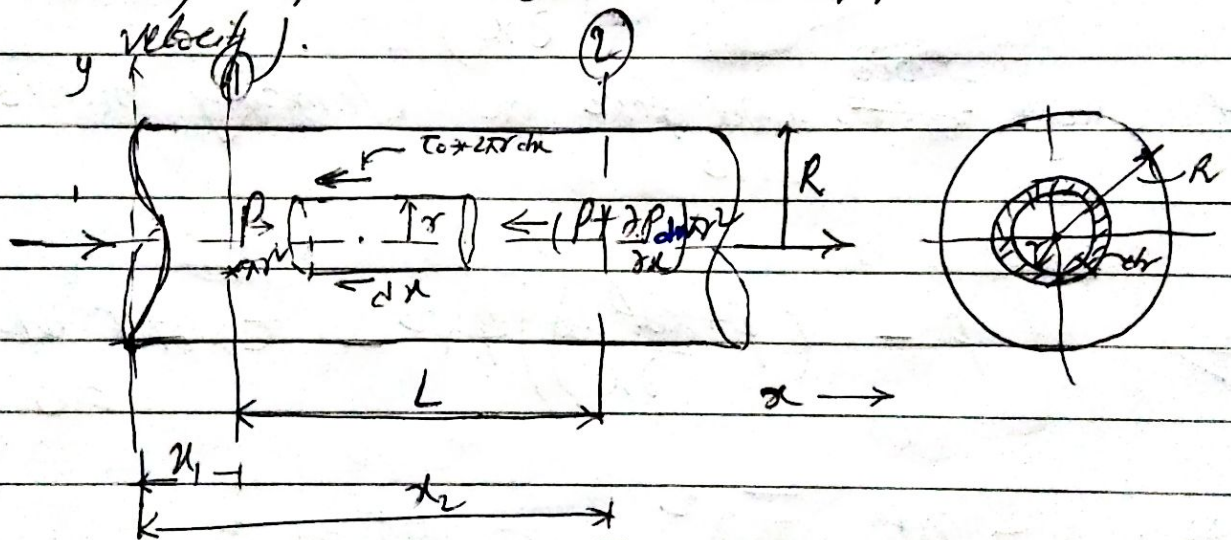 velocity).
y
①
②
τ₀ * 2πr dx
R
P * πr²
r
(P + ∂P/∂x dx) πr²
dx
R
r
dr
L
x →
x₁
x₂